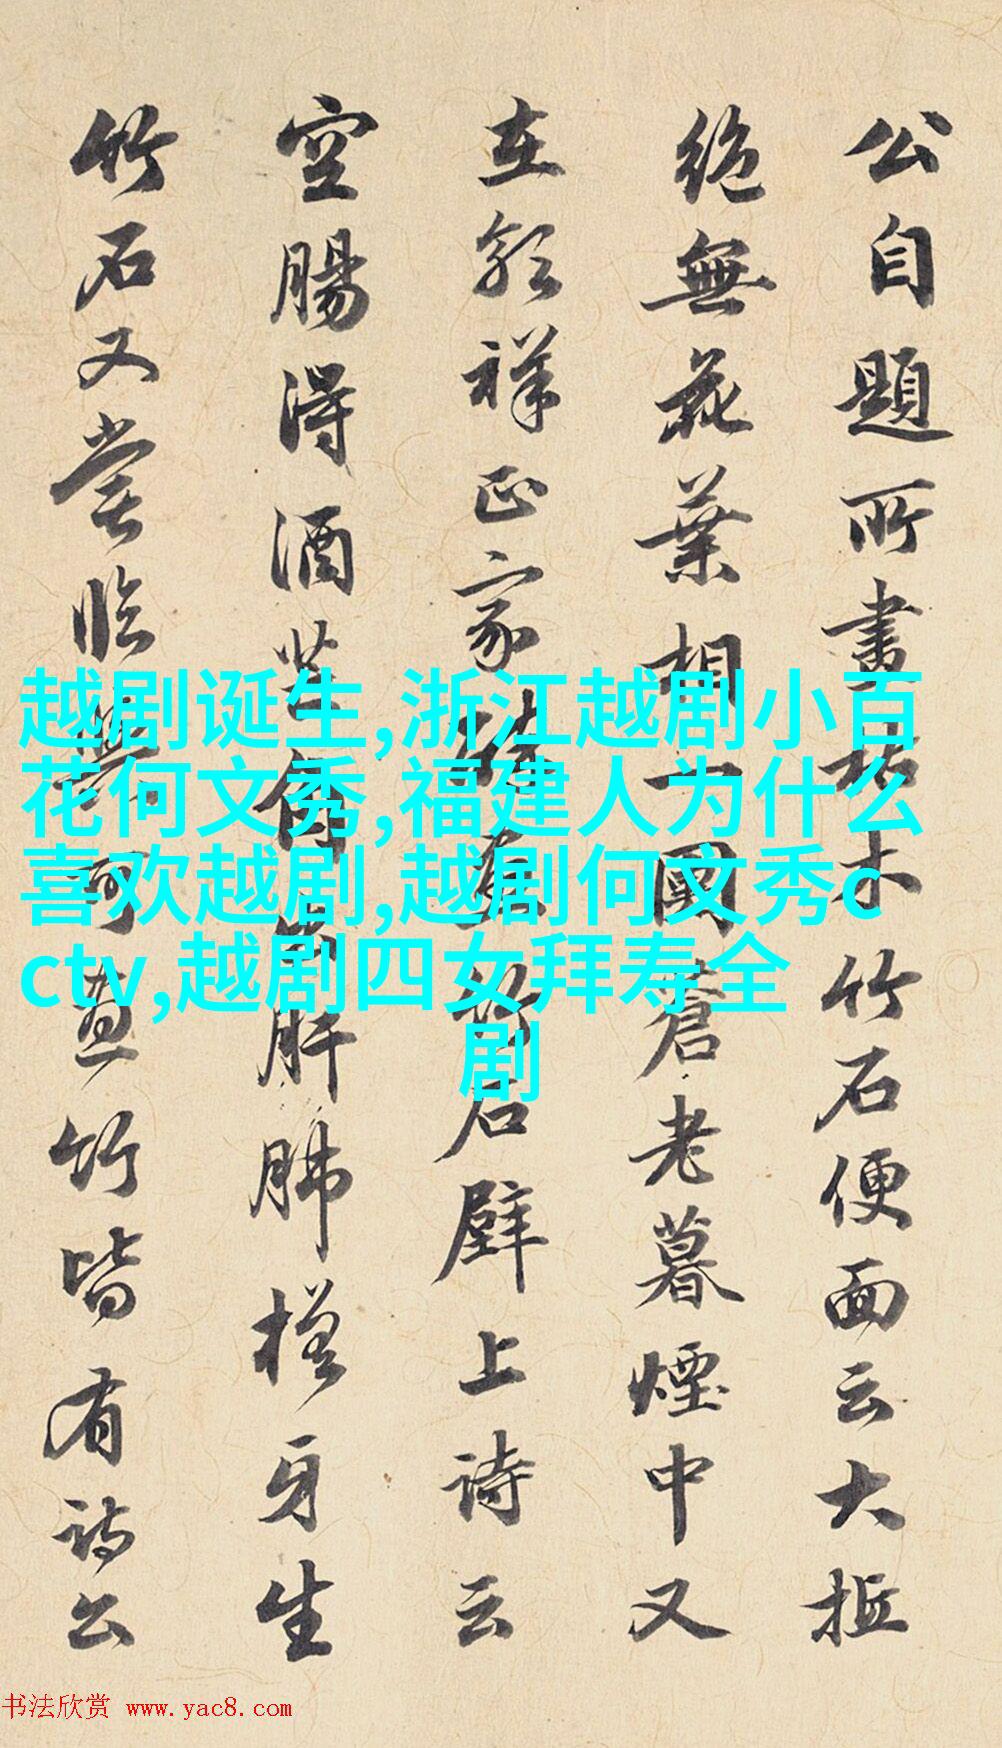 公自題所畫枯木竹石便面云大抵
絶無花葉相一國蒼老暮煙中又
在郭祥正家
壁上詩云
空腸得酒芒角出肝肺槎牙生
竹石又嘗臨與可畫竹皆有詩公
越剧诞生,浙江越剧小百
花何文秀,福建人为什么
喜欢越剧,越剧何文秀c
ctv,越剧四女拜寿全
剧
书法欣赏 www.yac8.com